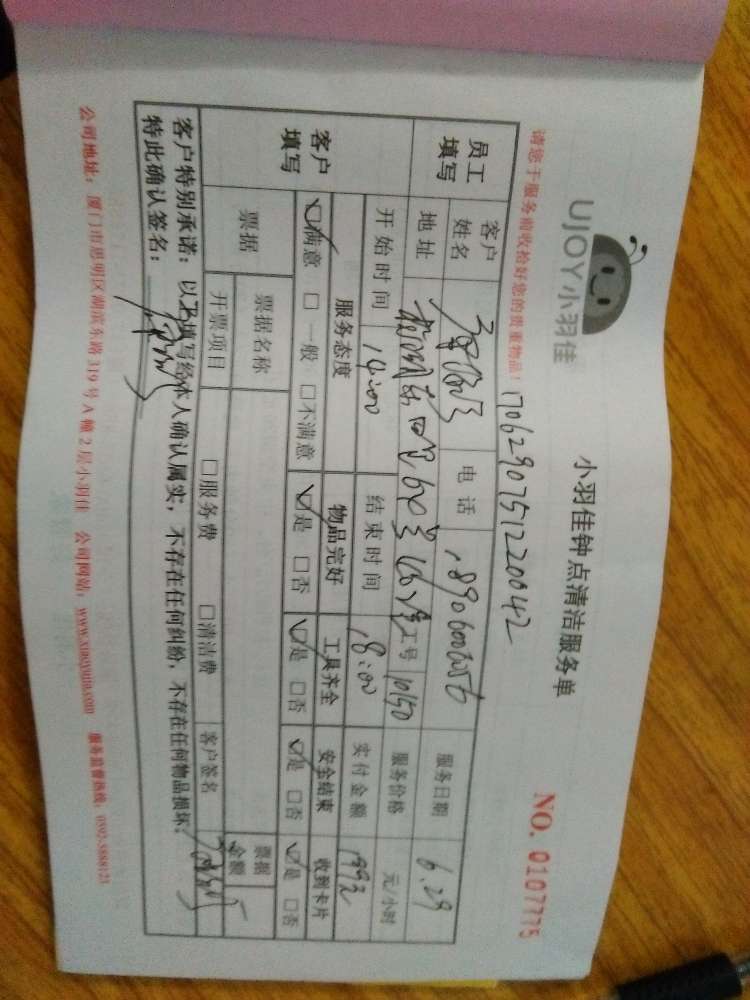 UJOY小羽佳
小羽佳钟点清洁服务单
NO. 0107775
请您于服务前收拾好您的贵重物品！
170629075122200042
员工填写
客户姓名
电话
服务日期 6.29
地址
工号 10150
服务价格 元/小时
开始时间 14:00
结束时间 18:00
实付金额
客户填写
服务态度 物品完好 工具齐全 安全结束 收到卡片
☑满意 □一般 □不满意 ☑是 □否 ☑是 □否 ☑是 □否 ☑是 □否
票据
票据名称
票据金额
开票项目 □服务费 □清洁费 客户签名
客户特别承诺：以上填写经本人确认属实，不存在任何纠纷，不存在任何物品损坏；
特此确认签名：
公司地址：厦门市思明区湖滨东路319号A幢2层小羽佳 公司网站：www.xiaoyujia.com 服务监督热线：0592-5888123